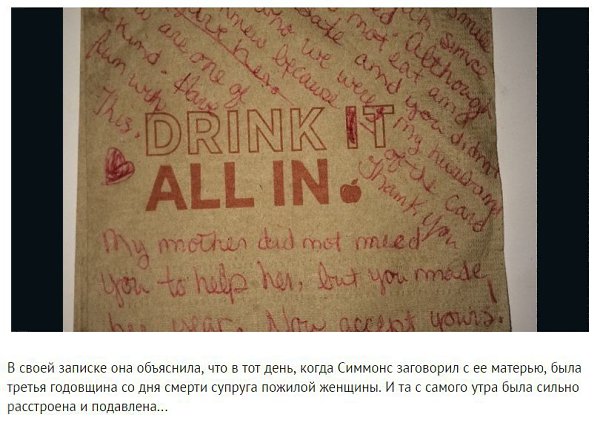 smile
an since
not eat any
date and you didn't
Although
who we were, my husband
knew because of the card
are one of
a kind. Have
fun with
this.
Thank you
DRINK IT
ALL IN
My mother did not need
you to help her, but you made
her year. Now accept yours!
В своей записке она объяснила, что в тот день, когда Симмонс заговорил с ее матерью, была
третья годовщина со дня смерти супруга пожилой женщины. И та с самого утра была сильно
расстроена и подавлена...